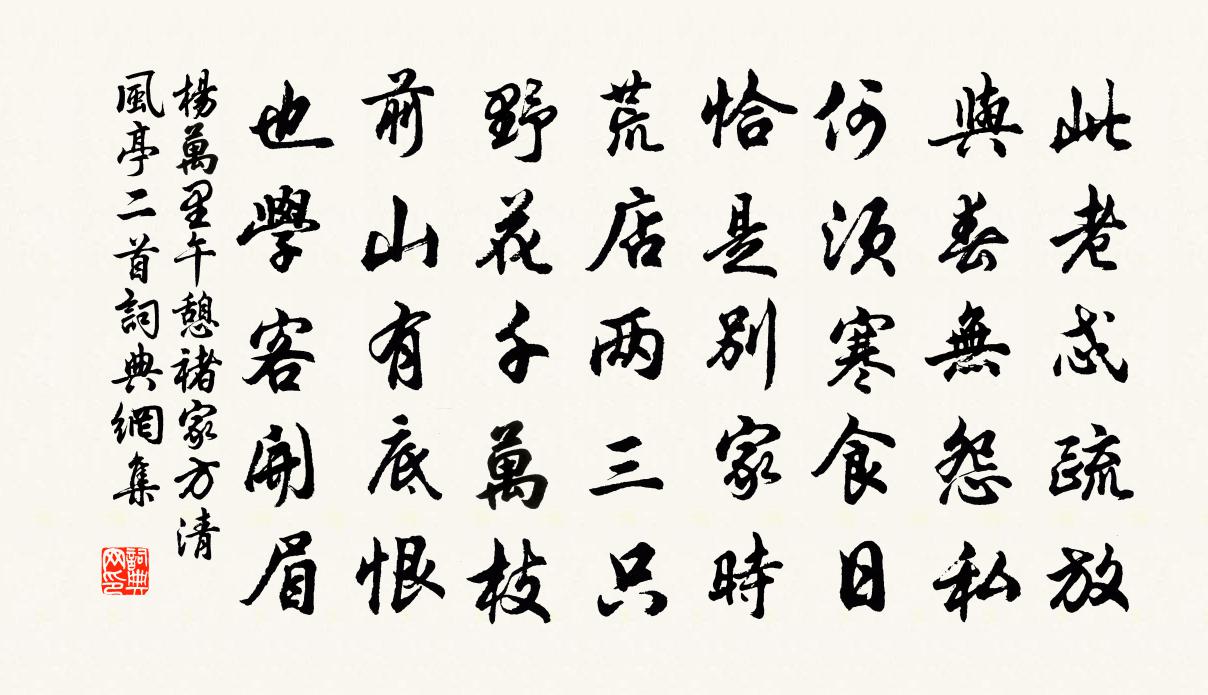 此老忒疏放
與春無怨私
何須寒食日
恰是別家時
荒店两三只
野花千萬枝
前山有底恨
也學客開眉
楊萬里午憩褚家方清
風亭二首詞典網集
詞典
网印